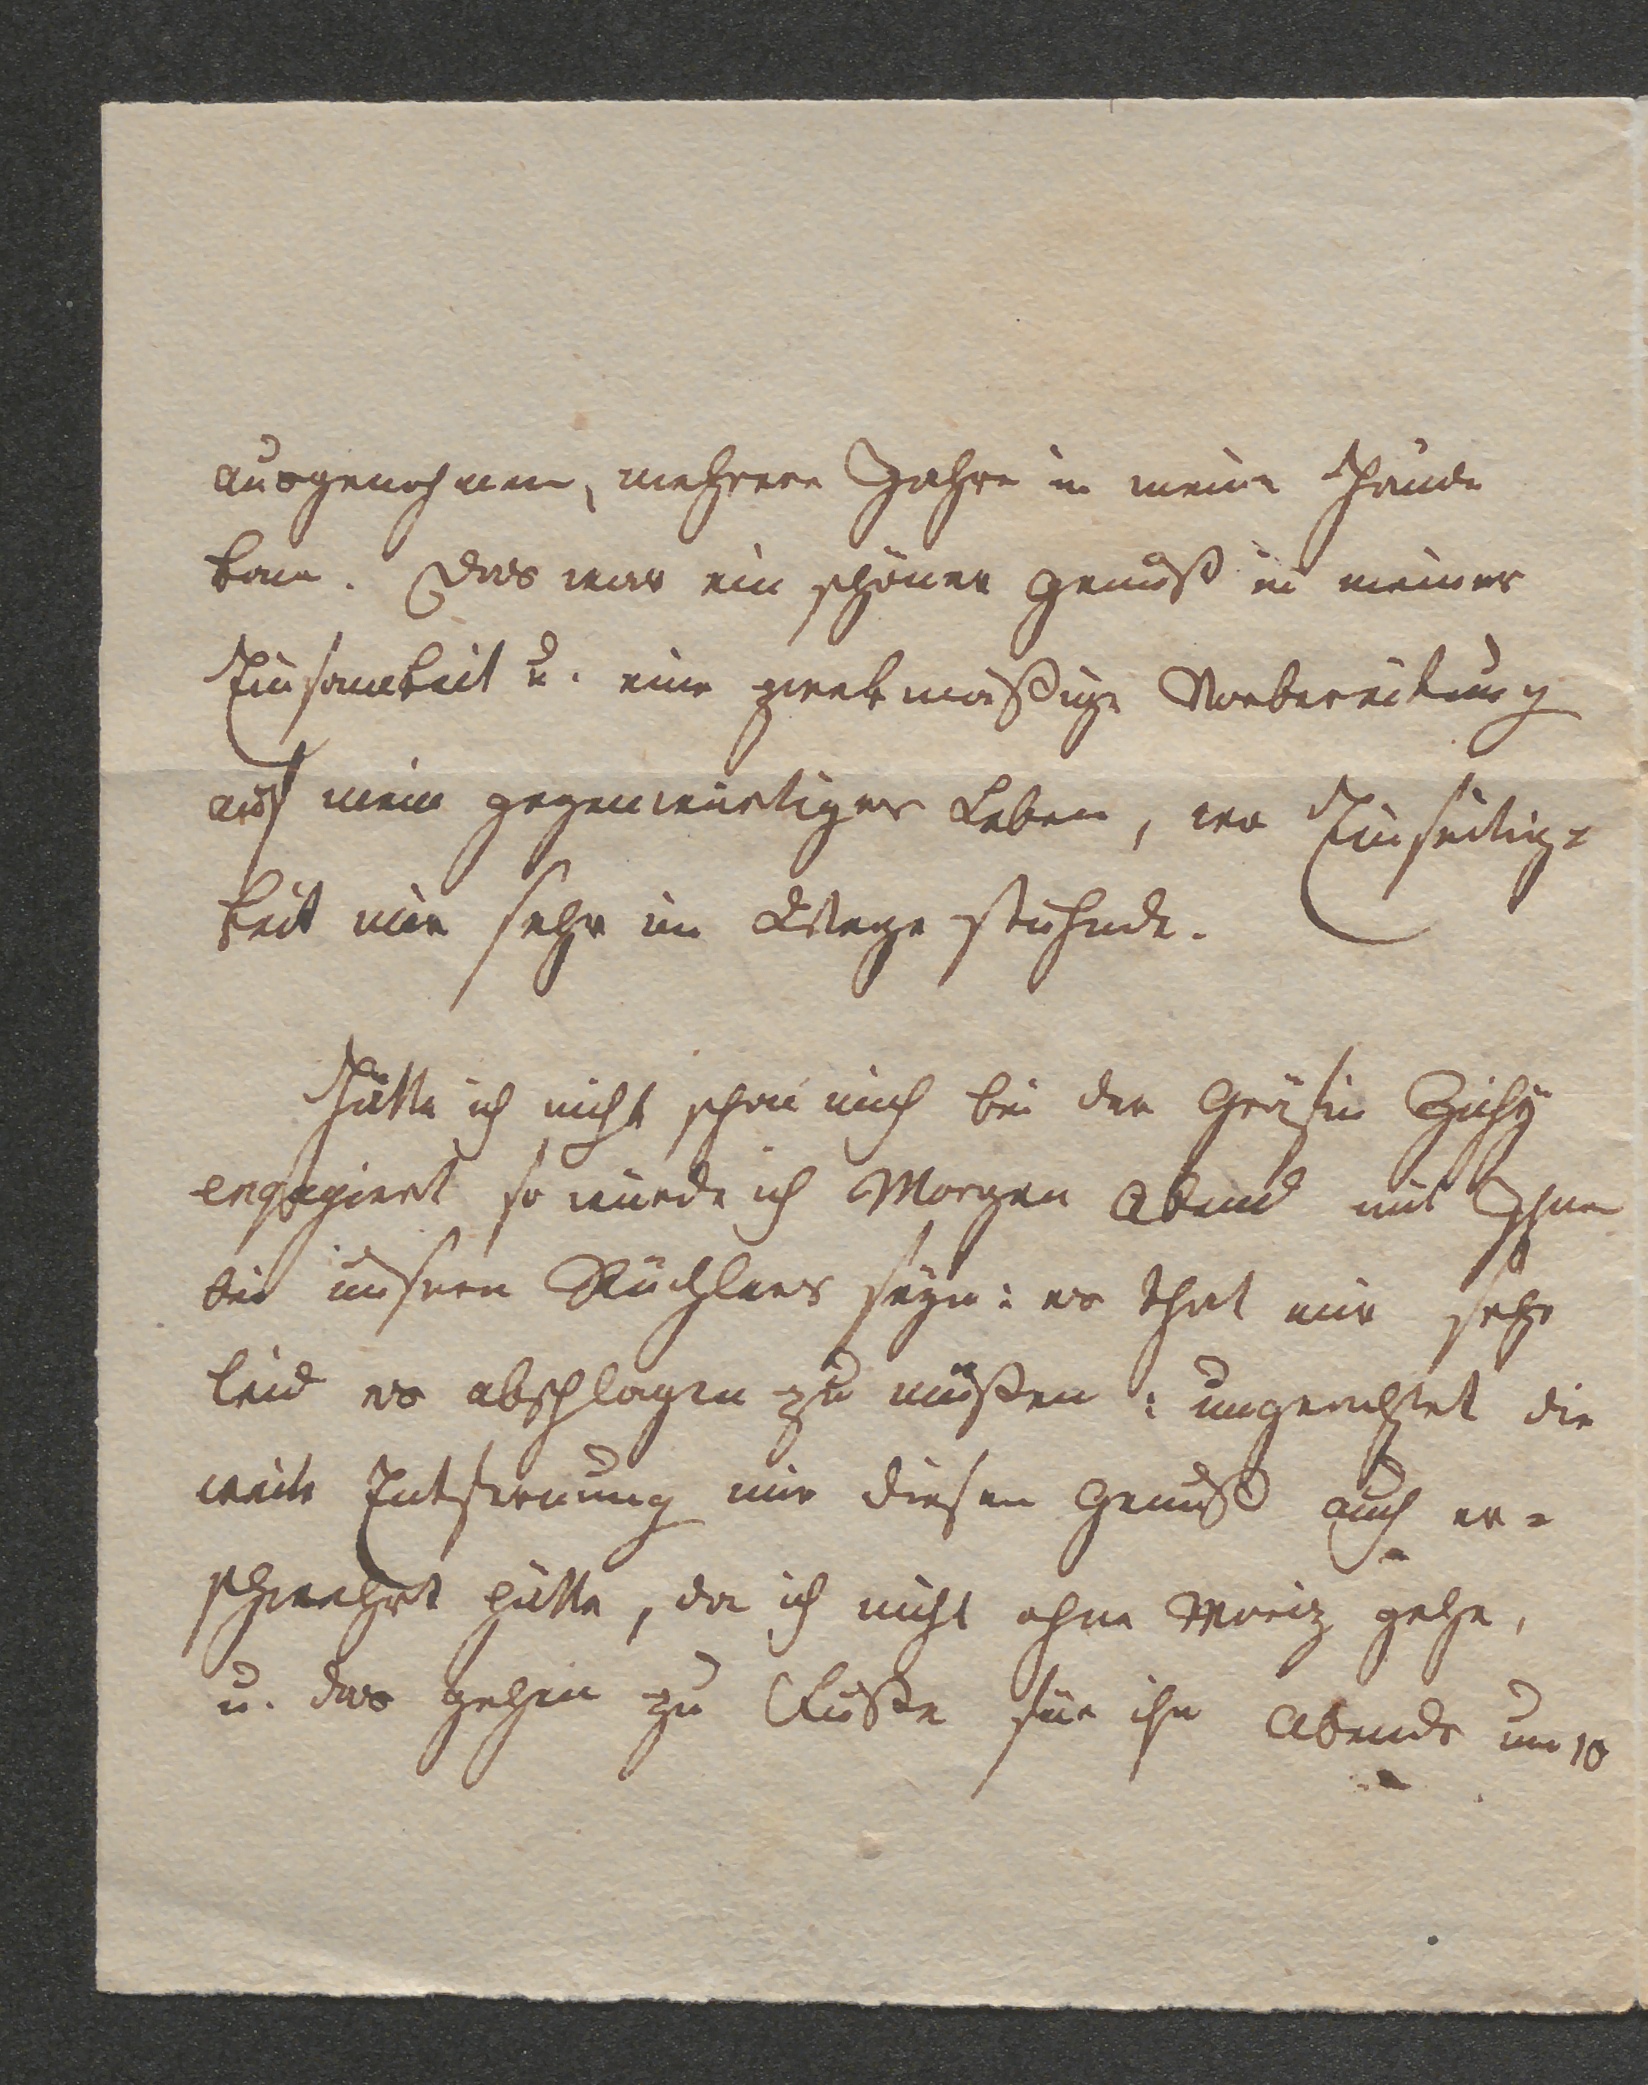 ausgenohmen, mehrere Jahre in meine Hände
kam. Das war ein schöner Genuß in meiner
Einsamkeit u. eine zwekmäßige Vorbereitung
auf mein gegenwärtiges Leben, wo Einseitig=
keit mir sehr im Wege stühnde.
Hätte ich nicht schon mich bei der Gräfin Zichÿ
engagiert so würde ich Morgen Abend mit Ihnen
bei unsern Büchlers seÿn: es that mir sehr
leid es abschlagen zu müßen: ungeachtet die
weite Entfernung mir diesen Genuß auch er=
schwehrt hätte, da ich nicht ohne Moriz gehe,
u. das gehen zu Fuße für ihn Abends um 10